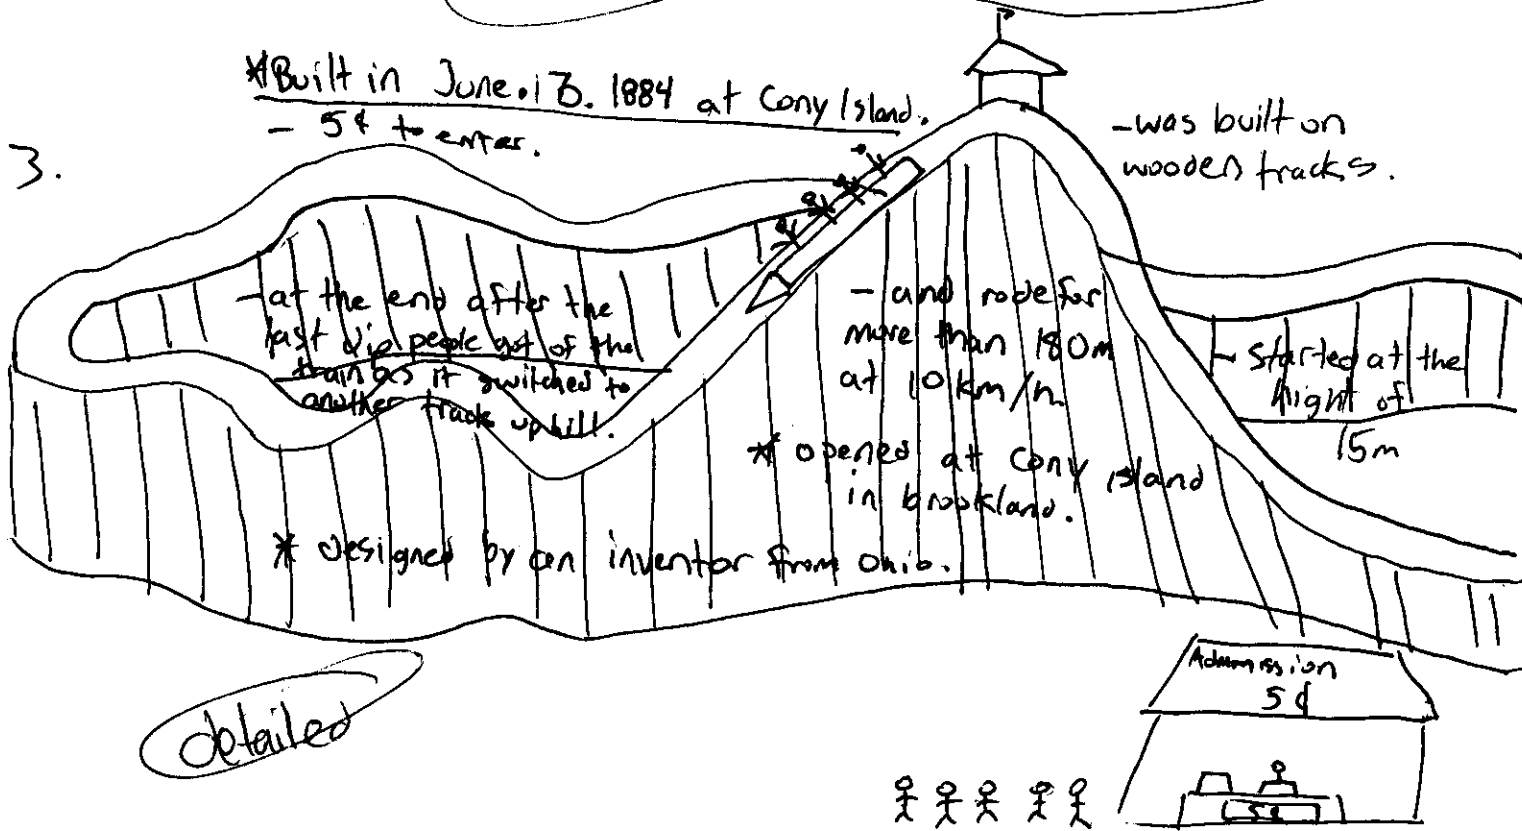 *Built in June.13. 1884 at Cony Island.
- 5¢ to enter.
3.
-was built on
wooden tracks.
-at the end after the
last dip people got of the
train as it switched to
another track up hill.
- and rode for
more than 180m
at 10 km/h
- started at the
hight of
15m
* opened at Cony Island
in brookland.
* designed by an inventor from Ohio.
detailed
Admission
5¢
5¢